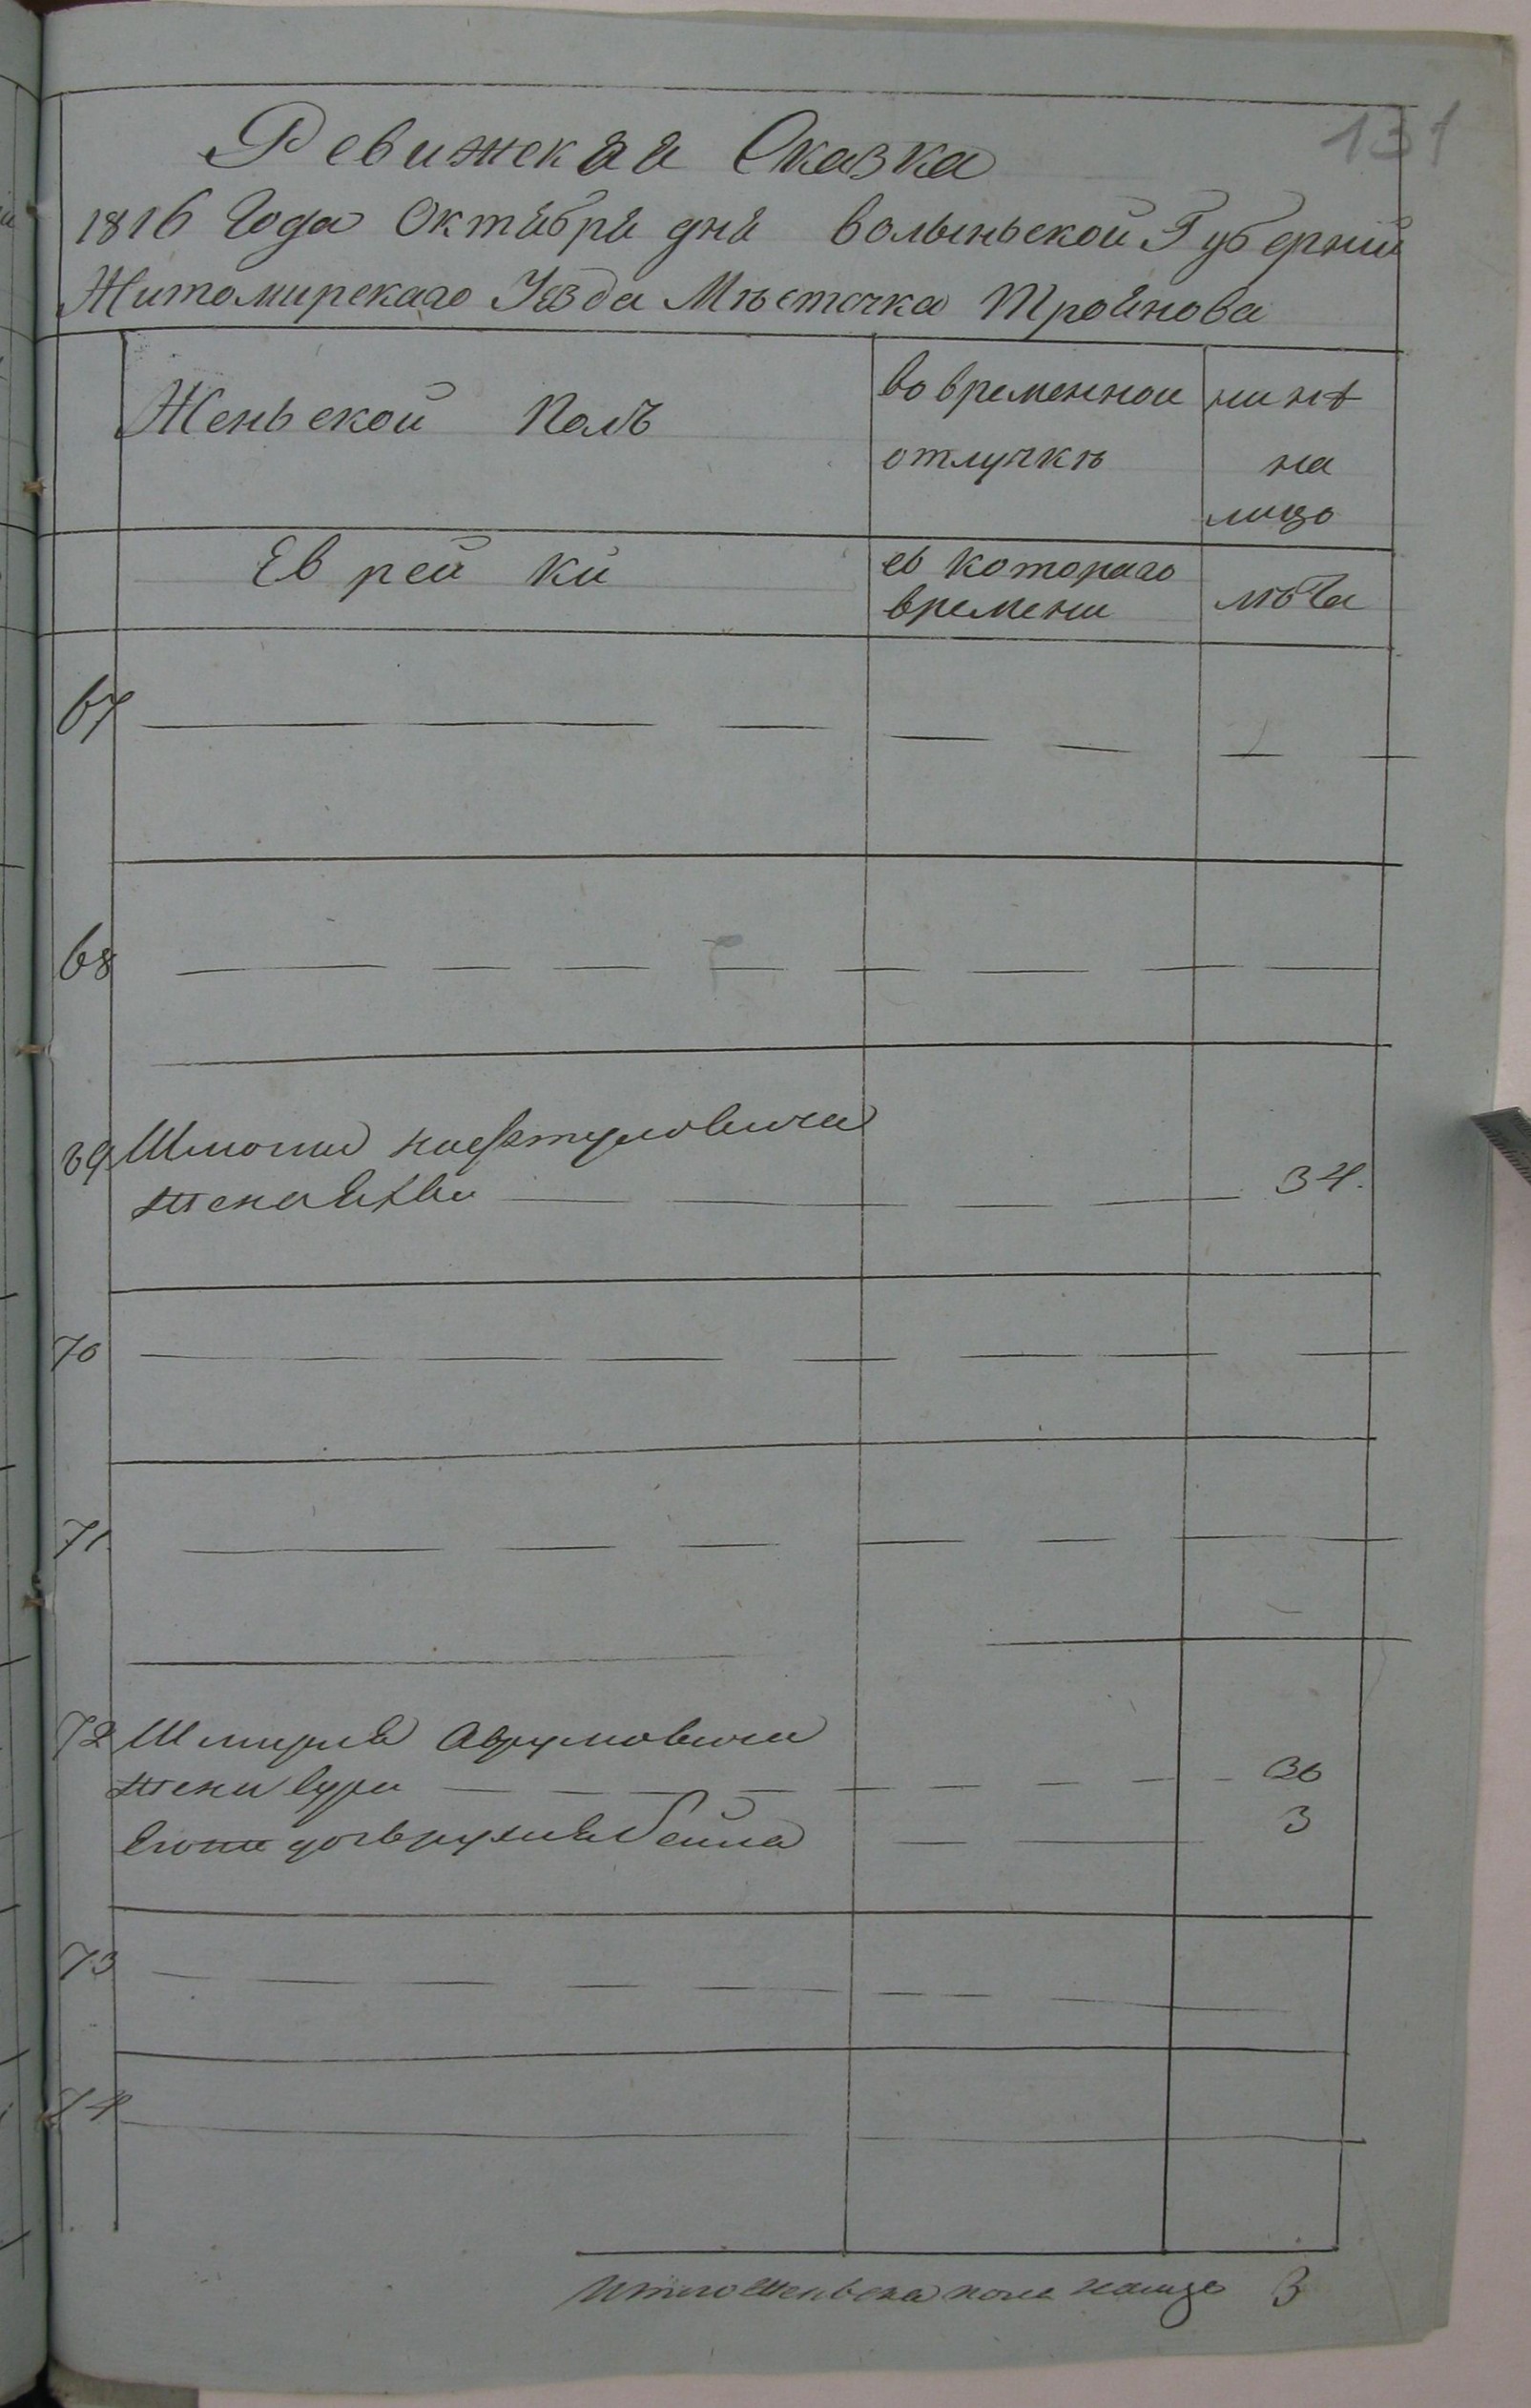 131
Ревижская Сказка
1816 Года Октября дня волыньской Губерний
Житомирскаго Уезда Мѣсточка Троянова
Женьской Полъ
во временной
отлучкѣ
нинѣ
на
лицо
Еврей ки
съ котораго
времени
лѣта
67
68
69 нафтуловича
жена 34.
70
71
72 Шмуля Аврумовича
жена Сура 30
Его дочь 3
73
74
Итого женьска пола налицо 3